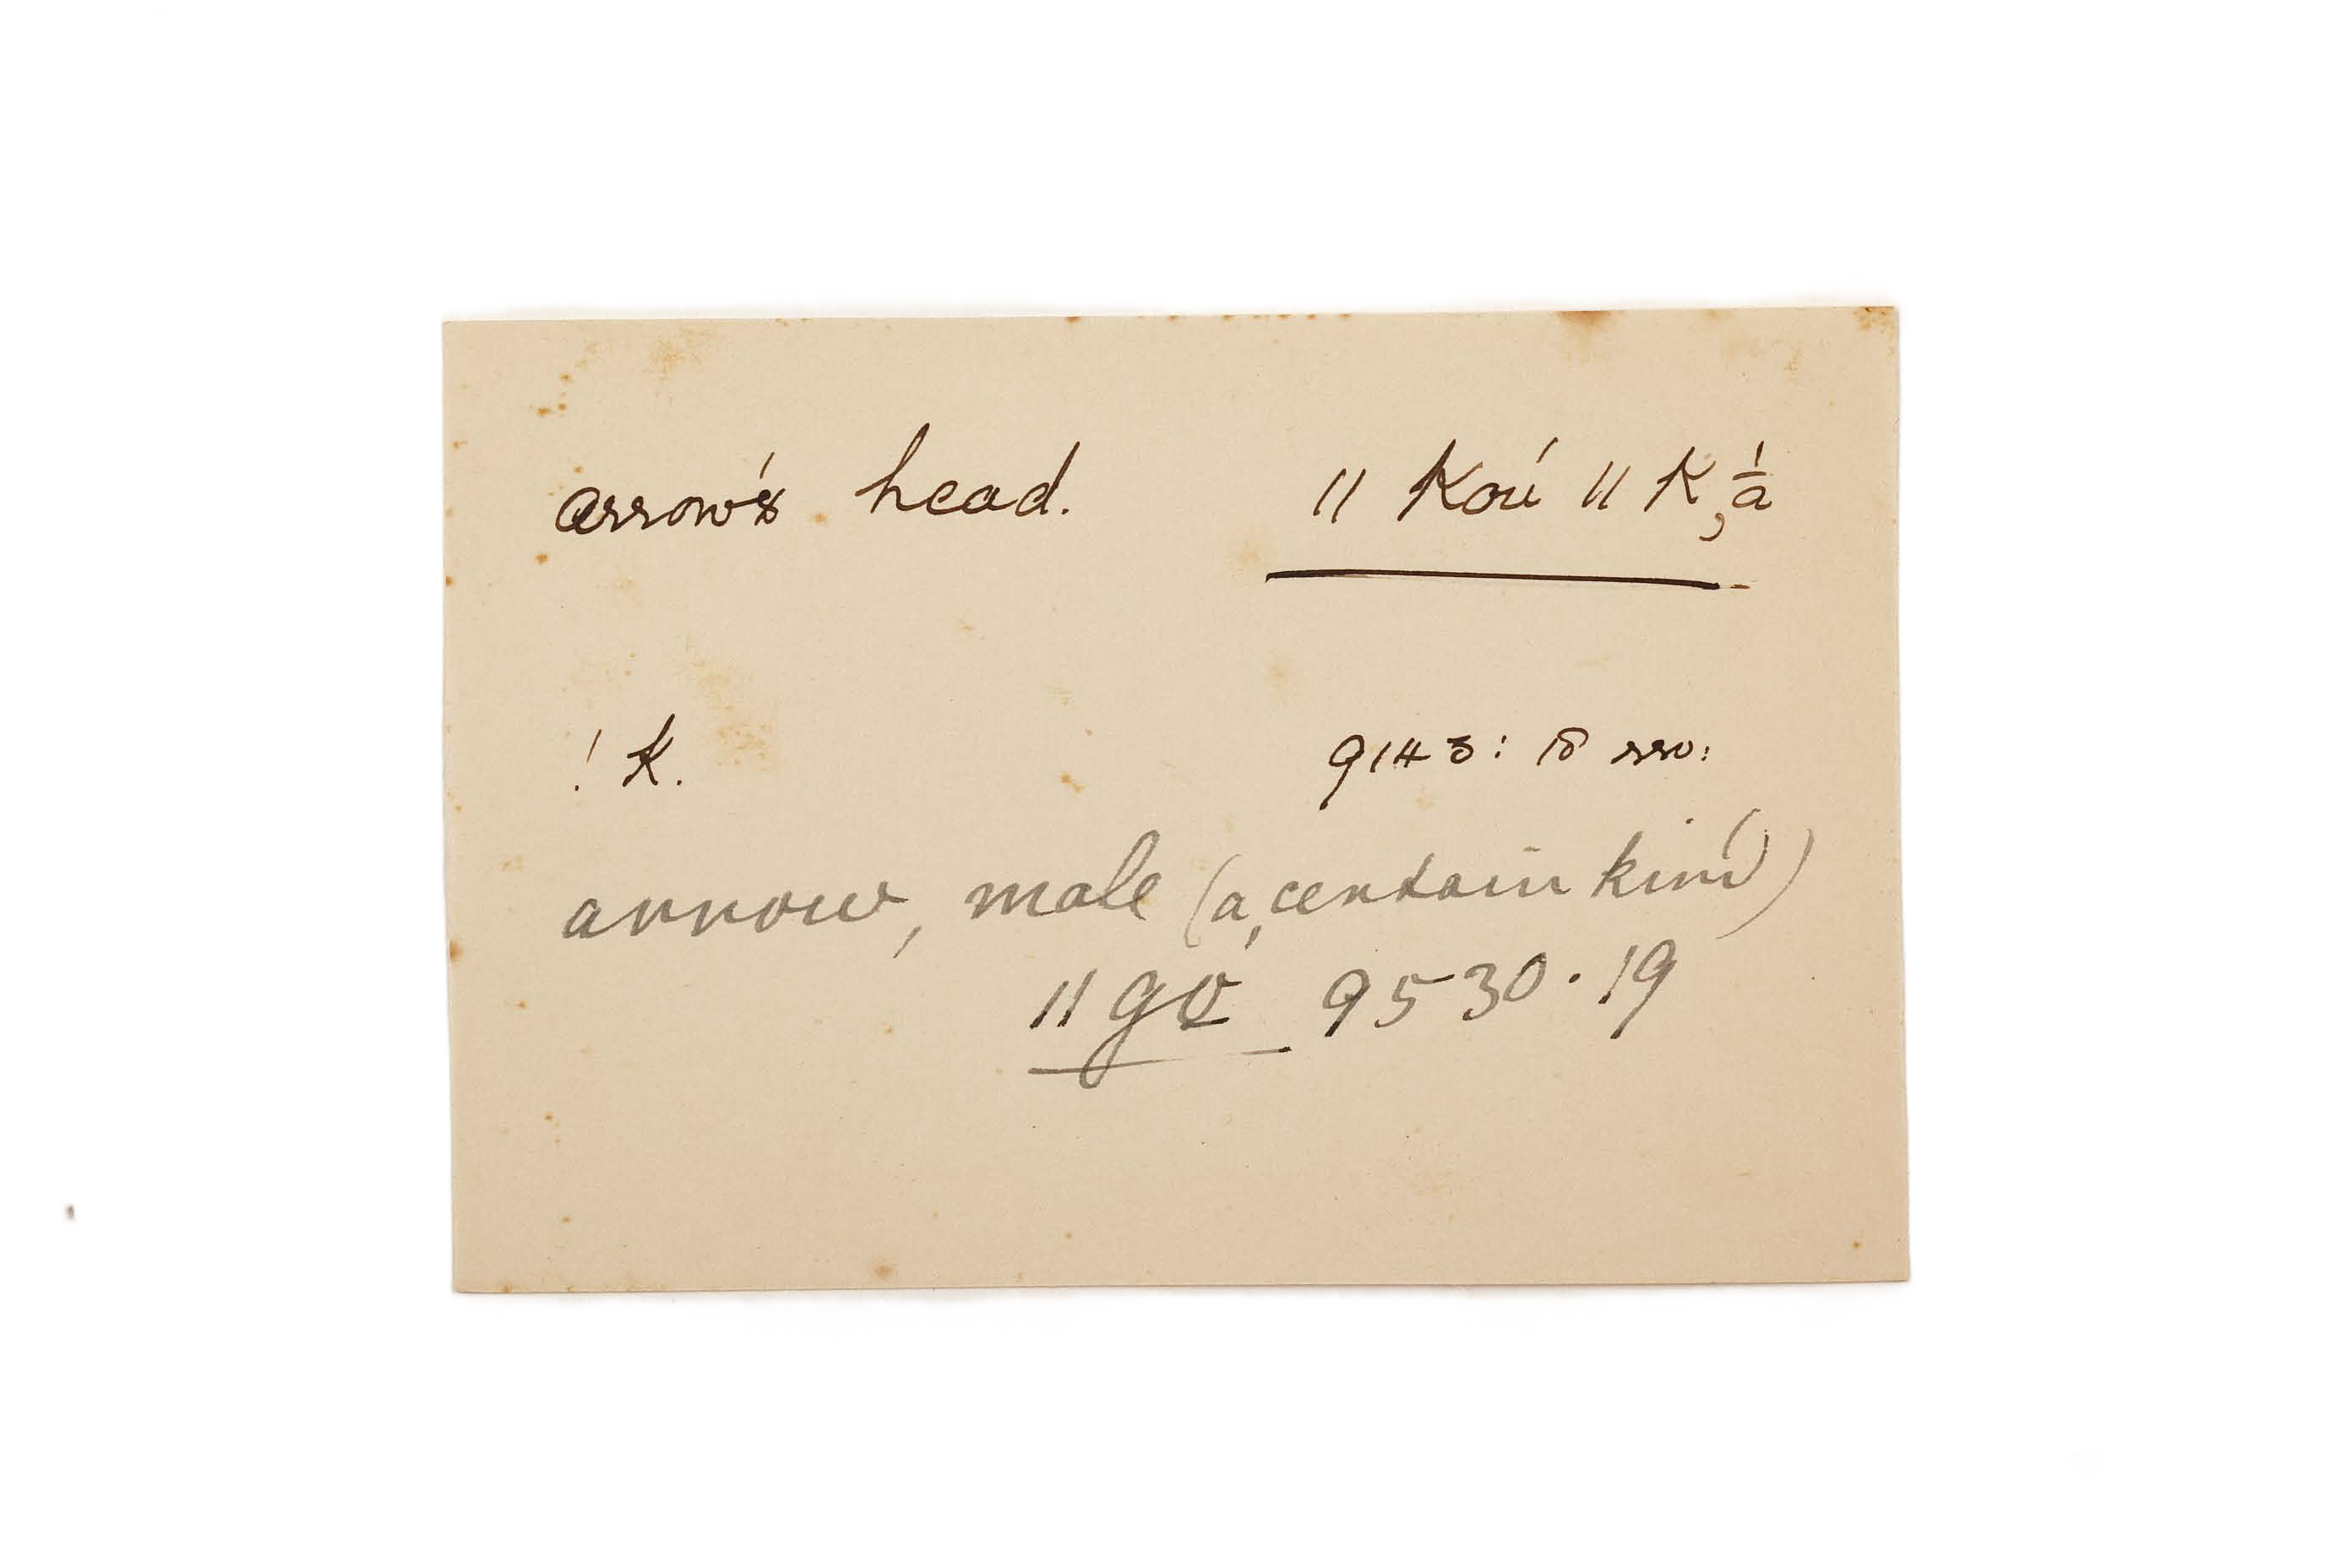 arrow's head. || Koú || K,á̱
! K. 9143: 18 rro:
arrow, male (a certain kind)
|| go̱ 9530. 19